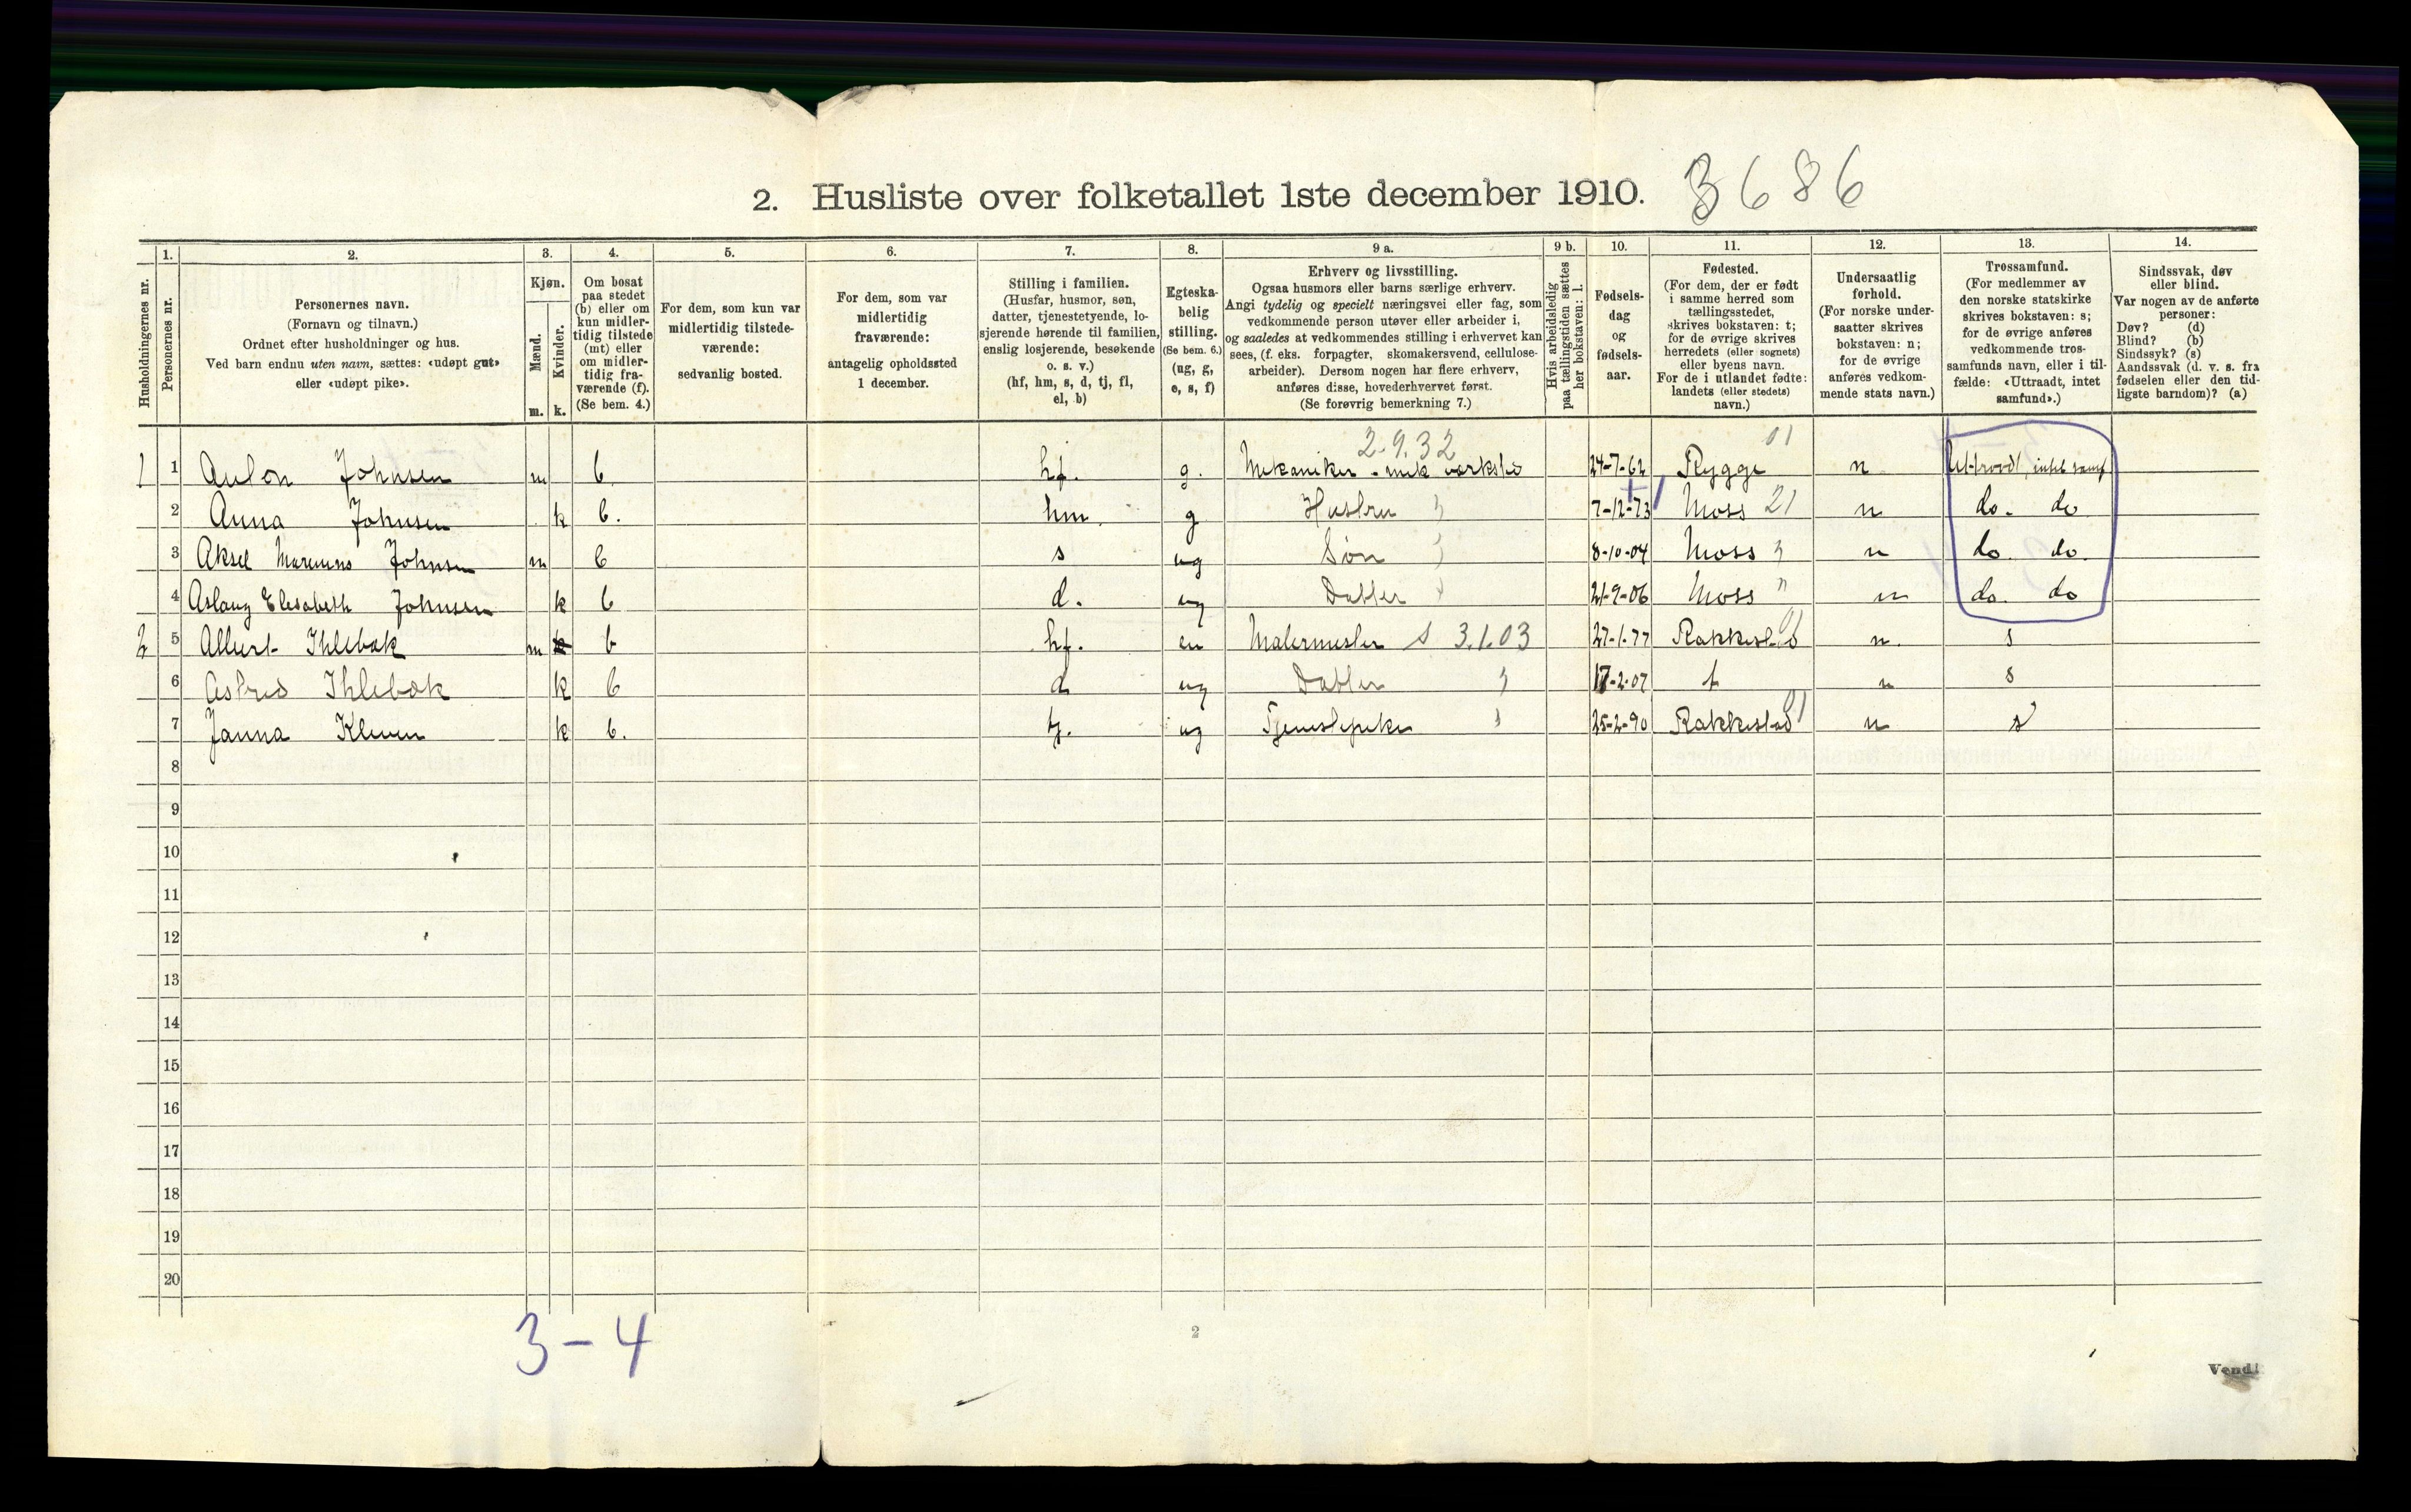 2. Husliste over folketallet 1ste december 1910. 3686
Husholdningernes nr.
1. Personernes nr.
2. Personernes navn.
(Fornavn og tilnavn.)
Ordnet efter husholdninger og hus.
Ved barn endnu uten navn, sættes: «udøpt gut»
eller «udøpt pike».
3. Kjøn.
Mænd. m.
Kvinder. k.
4. Om bosat
paa stedet
(b) eller om
kun midler-
tidig tilstede
(mt) eller
om midler-
tidig fra-
værende (f).
(Se bem. 4.)
5. For dem, som kun var
midlertidig tilstede-
værende:
sedvanlig bosted.
6. For dem, som var
midlertidig
fraværende:
antagelig opholdssted
1 december.
7. Stilling i familien.
(Husfar, husmor, søn,
datter, tjenestetyende, lo-
sjerende hørende til familien,
enslig losjerende, besøkende
o. s. v.)
(hf, hm, s, d, tj, fl,
el, b)
8. Egteska-
belig
stilling.
(Se bem. 6.)
(ug, g,
e, s, f)
9 a. Erhverv og livsstilling.
Ogsaa husmors eller barns særlige erhverv.
Angi tydelig og specielt næringsvei eller fag, som
vedkommende person utøver eller arbeider i,
og saaledes at vedkommendes stilling i erhvervet kan
sees, (f. eks. forpagter, skomakersvend, cellulose-
arbeider). Dersom nogen har flere erhverv,
anføres disse, hovederhvervet først.
(Se forøvrig bemerkning 7.)
9 b. Hvis arbeidsledig
paa tællingstiden sættes
her bokstaven: l.
10. Fødsels-
dag
og
fødsels-
aar.
11. Fødested.
(For dem, der er født
i samme herred som
tællingsstedet,
skrives bokstaven: t;
for de øvrige skrives
herredets (eller sognets)
eller byens navn.
For de i utlandet fødte:
landets (eller stedets)
navn.)
12. Undersaatlig
forhold.
(For norske under-
saatter skrives
bokstaven: n;
for de øvrige
anføres vedkom-
mende stats navn.)
13. Trossamfund.
(For medlemmer av
den norske statskirke
skrives bokstaven: s;
for de øvrige anføres
vedkommende tros-
samfunds navn, eller i til-
fælde: «Uttraadt, intet
samfund».)
14. Sindssvak, døv
eller blind.
Var nogen av de anførte
personer:
Døv? (d)
Blind? (b)
Sindssyk? (s)
Aandssvak (d. v. s. fra
fødselen eller den tid-
ligste barndom)? (a)
2.9.32 01
1 1 Anton Johnsen m b. hf. g. Mekaniker - mek værksted 24-7-62 Rygge n Uttraadt, intet samf
2 Anna Johnsen k b. hm. g Hustru 7-12-73 Moss 21 n do. do
3 Aksel Johnsen m b s ug Søn 8-10-04 Moss n do. do.
4 Aslaug Elisabeth Johnsen k b d. ug Datter 21-9-06 Moss " n do. do
2 5 Albert Ihlebæk m b hf. en Malermester s 3.1.03 27-1-77 Rakkestad n. s
6 Astrid Ihlebæk k b d ug Datter 17-2-07 t n s
7 Janna Kleven k b. tj. ug Tjenestepike 25-2-90 Rakkestad n s
8
9
10
11
12
13
14
15
16
17
18
19
20
3-4
2
Vend!